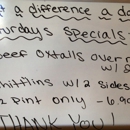 a difference a d
urdays Specials
eef Oxtails over r
w/2 s
hitflins w/2 sides
pint only - 6.9
THANK YOU!